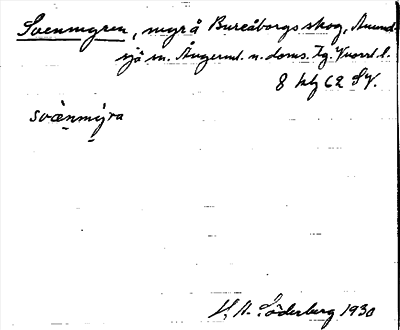 Svenmyren, myr å Bureåborgs skog, Anund-
sjö sn. Ångerml. n. doms. Tg. Yvorsl. l.
8 klg 62 SV.
svènmýra
H. A. Söderberg 1930